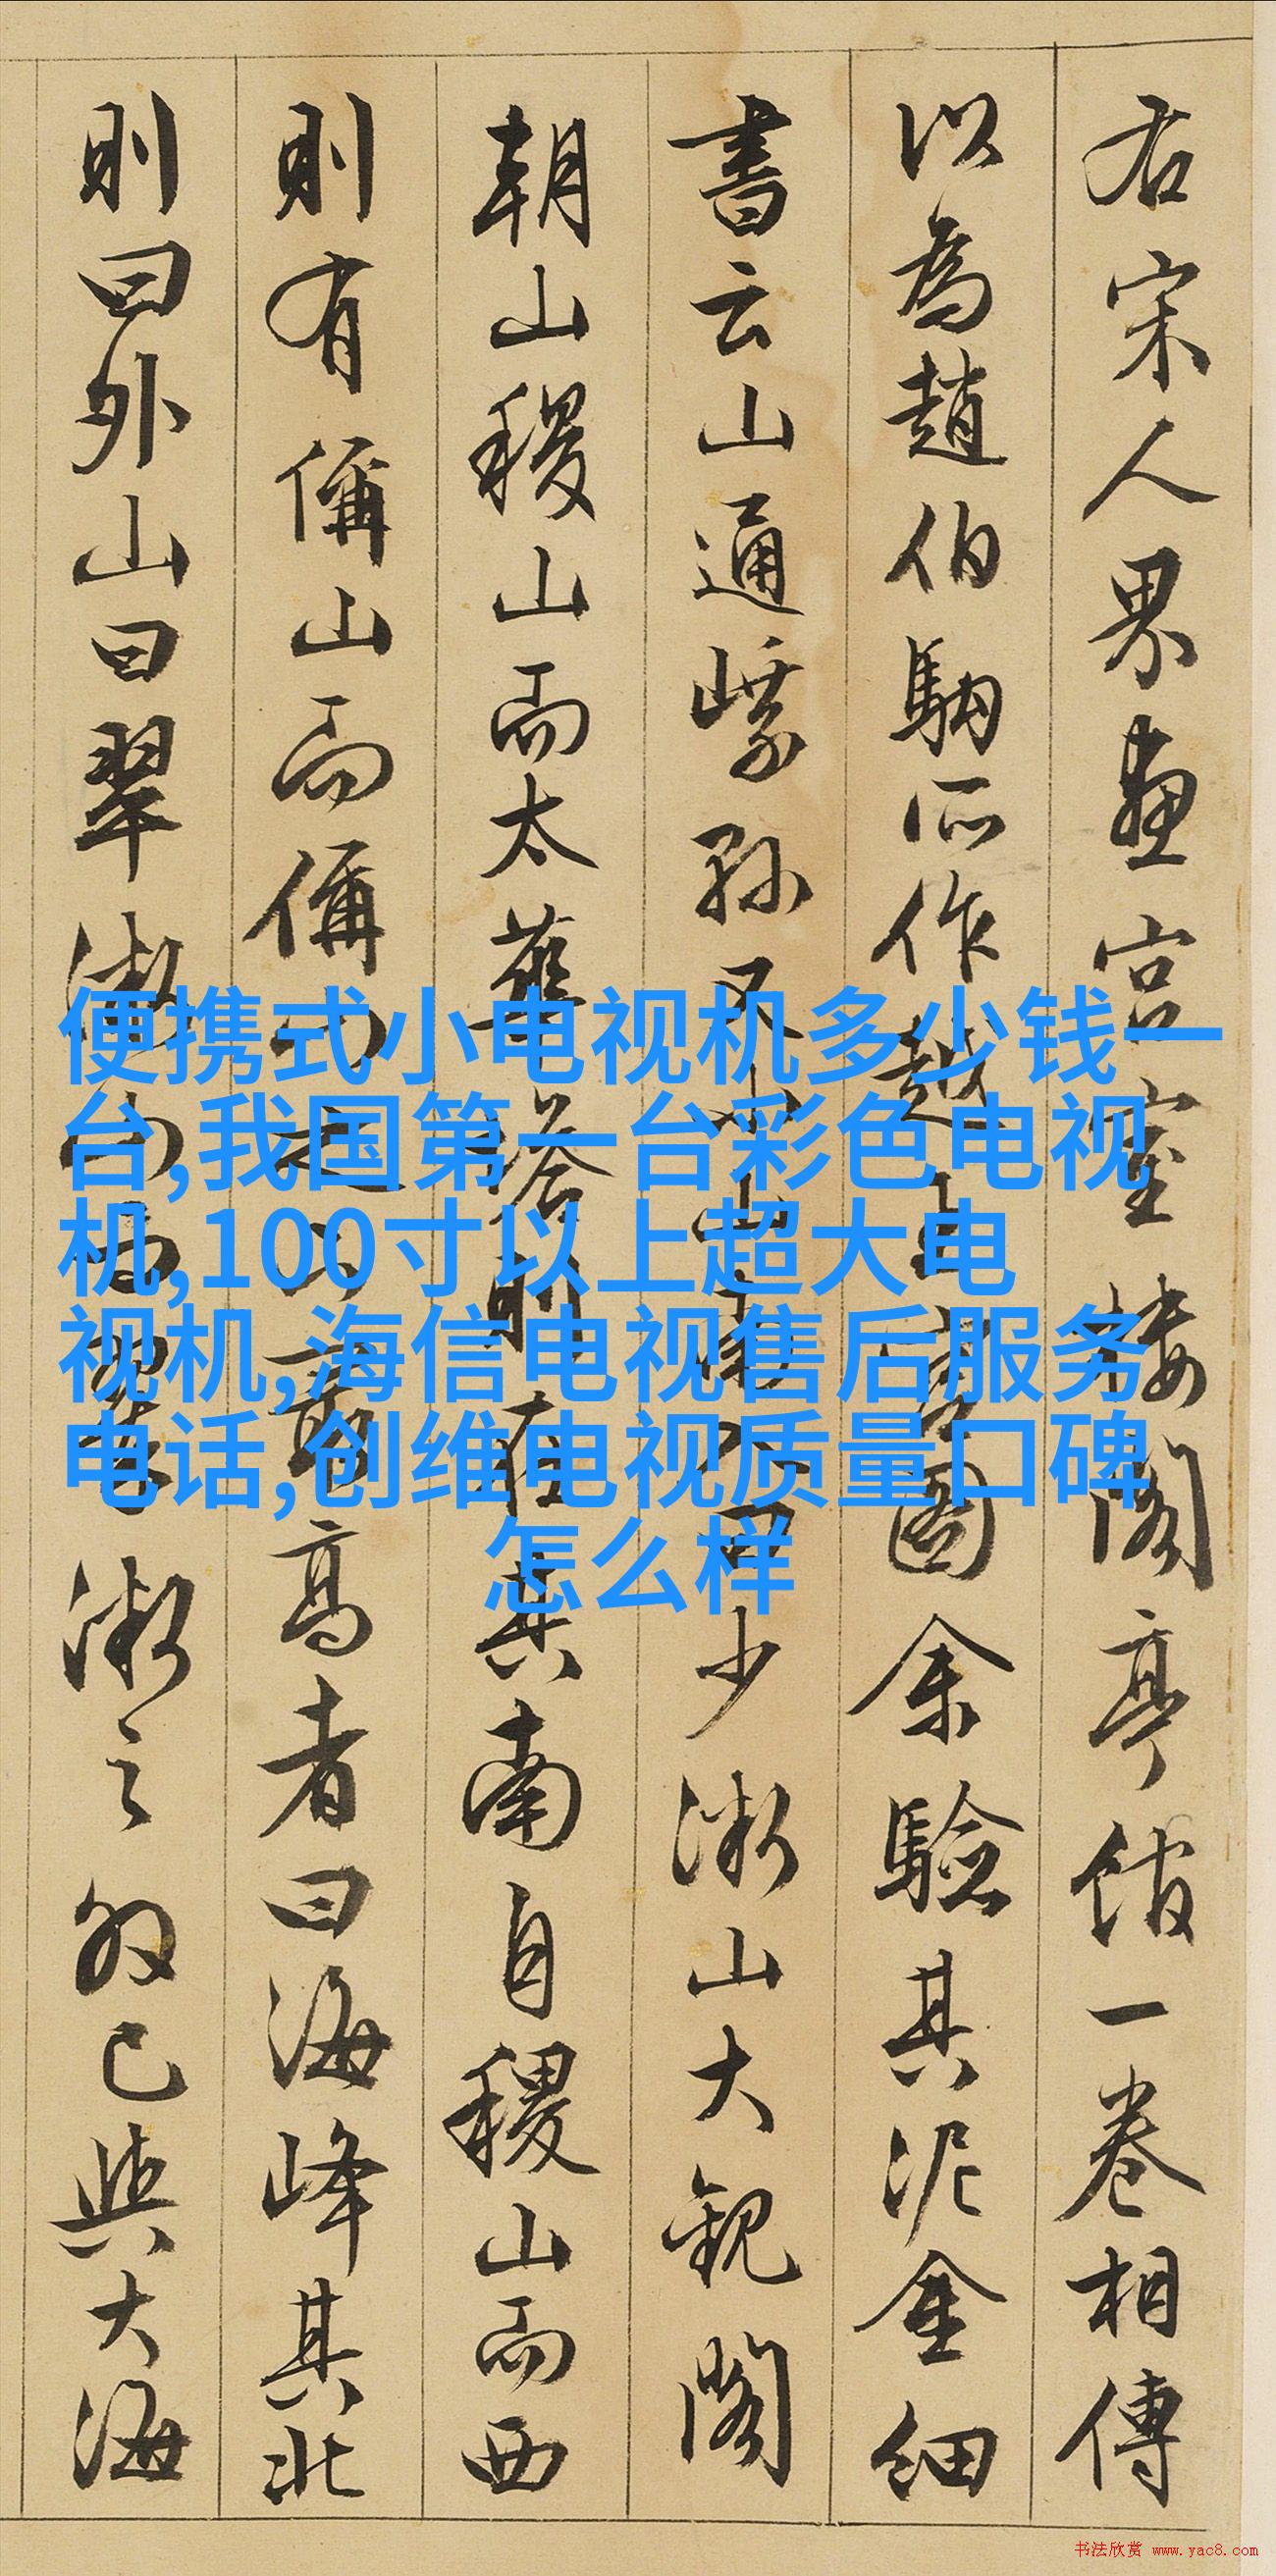 右宋人界畫宮室樓閣亭館一卷相傳
以為趙伯駒所作越王宮圖余驗其泥金細
書云山通
少微山大觀閣
朝山稷山而太華塔前在其南自稷山而西
則有偁山而偁山之最高者曰海峰其北
則曰外山曰翠微山而翠微之外已與大海
便携式小电视机多少钱一
台,我国第一台彩色电视
机,100寸以上超大电
视机,海信电视售后服务
电话,创维电视质量口碑
怎么样
书法欣赏 www.yac8.com